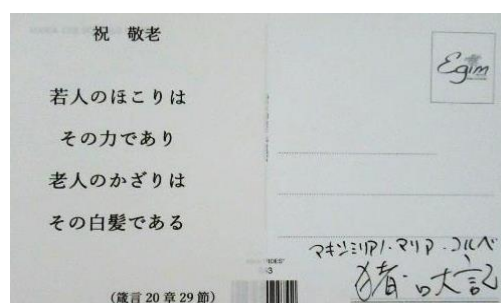 祝 敬老
若人のほこりは
その力であり
老人のかざりは
その白髪である
(箴言 20 章 29 節)
Egim
マキシミリアノ・マリア・コルベ
猪口大記